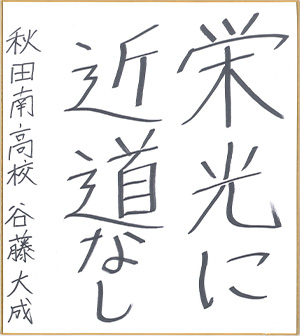 栄光に
近道なし
秋田南高校 谷藤大成